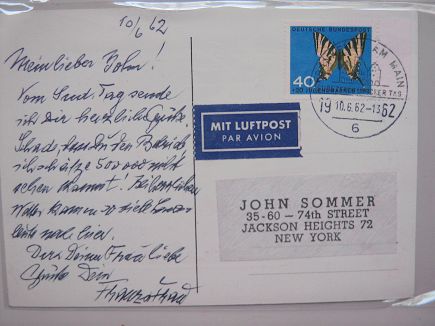 10/6 62
Mein lieber John!
Vom Sud. Tag sende
ich Dir herzliche Grüße
Schade, dass Du den Betrieb
ich schätze 500 000 nicht
sehen kannst!
Wetter kamen so viele
Dir, Deiner Frau liebe
Grüße Dein
DEUTSCHE BUNDESPOST
40
+20 JUGENDMARKEN 1962
AM MAIN
19 10.6.62-13 62
6
MIT LUFTPOST
PAR AVION
JOHN SOMMER
35-60 - 74th STREET
JACKSON HEIGHTS 72
NEW YORK